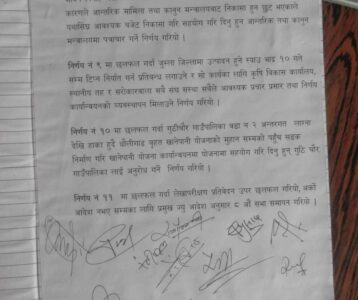 कारणले आन्तरिक मामिला तथा कानुन मन्त्रालयबाट निकासा हुन छुट भएकाले
यथासिघ्र आवश्यक बजेट निकासा का लागि सहयोग गरि दिनु हुन आन्तरिक तथा कानुन
मन्त्रालयमा पत्राचार गर्ने निर्णय गरियो ।
निर्णय नं ९ मा छलफल गर्दा जुम्ला जिल्लामा उत्पादन हुने स्याउ भाद्र १० गते
सम्म टिप्न निर्यात गर्न प्रतिबन्ध लगाउने र सो कार्यका लागि कृषि विकास कार्यालय,
स्थानीय तह र सरोकारवाला सबै संघ सस्था सबैले आवश्यक प्रचार प्रसार तथा निर्णय
कार्यान्वयनको व्यवस्थापन मिलाउने निर्णय गरियो ।
निर्णय नं १० मा छलफल गर्दा गुठीचौर गाउँपालिका वडा न २ अन्तरगत
देखि ढाका हुदै धौलीगाड वृहत खानेपानी योजनाको मुहान सम्मको पहुँच सडक
निर्माण गरि खानेपानी योजना कार्यान्वयनमा योजनामा सहयोग गरि दिनु हुन गुठि चौर
गाउँपालिका लाई अनुरोध गर्ने निर्णय गरियो ।
निर्णय नं ११ मा छलफल गर्दा लेखापरीक्षण प्रतिवेदन उपर छलफल गरियो, अर्को
आदेश नभए सम्मका लागि प्रमुख ज्यु आदेश अनुसार ८ औं सभा समापन गरियो ।